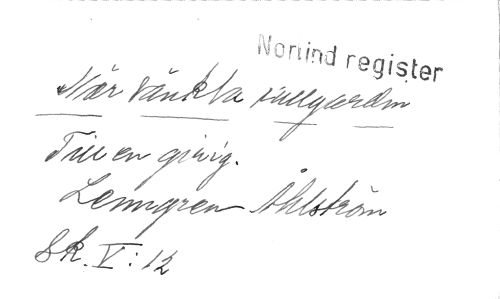 Norlind register
När tänkta rullgardin
Till en girig.
Lenngren Åhlström
Sk. V: 12